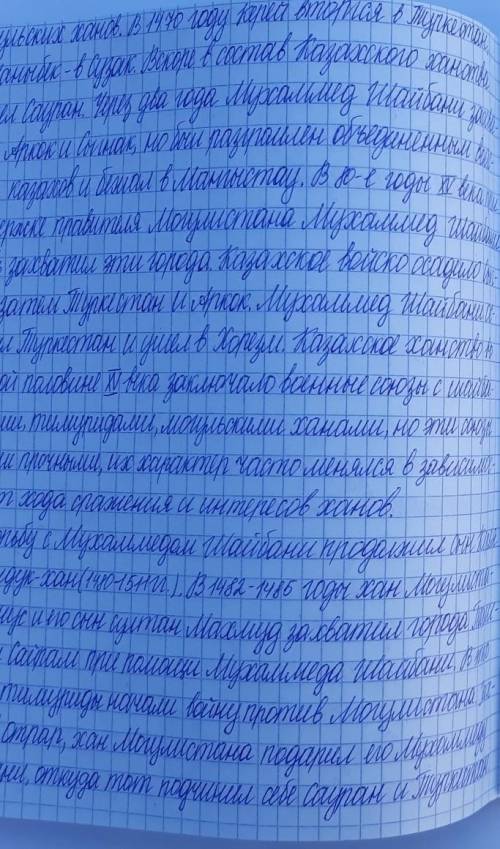 ульских ханов. В 1470 году Керей вторгся в Туркестан,
аныбек - в Сузак. Вскоре в состав Казахского ханства
ел Сауран. Через два года Мухаммед Шайбани
Аркок и Сыгнак, но был разгромлен объединенным
казахов и бежал в Мангыстау. В 80-е годы XV века
ержке правителя Могулистана Мухаммед Шайбани
захватил эти города. Казахское войско осадило
затем Туркестан и Аркок. Мухаммед Шайбани
ел Туркестан и ушел в Хорезм. Казахское ханство
ой половине XV века заключало военные союзы с шайба-
ми, тимуридами, могульскими ханами, но эти союзы
и прочными, их характер часто менялся в зависимо-
т хода сражения и интересов ханов.
рьбу с Мухаммедом Шайбани продолжил сын
ндук-хан (1480-1511 гг.). В 1482-1485 годы хан Могулиста-
нус и его сын султан Махмуд захватил города
и Сайрам при помощи Мухаммеда Шайбани. В
тимуриды начали войну против Могулистана. За
Отрар, хан Могулистана подарил его Мухаммеду
ни, откуда тот подчинил себе Сауран и Туркестан.